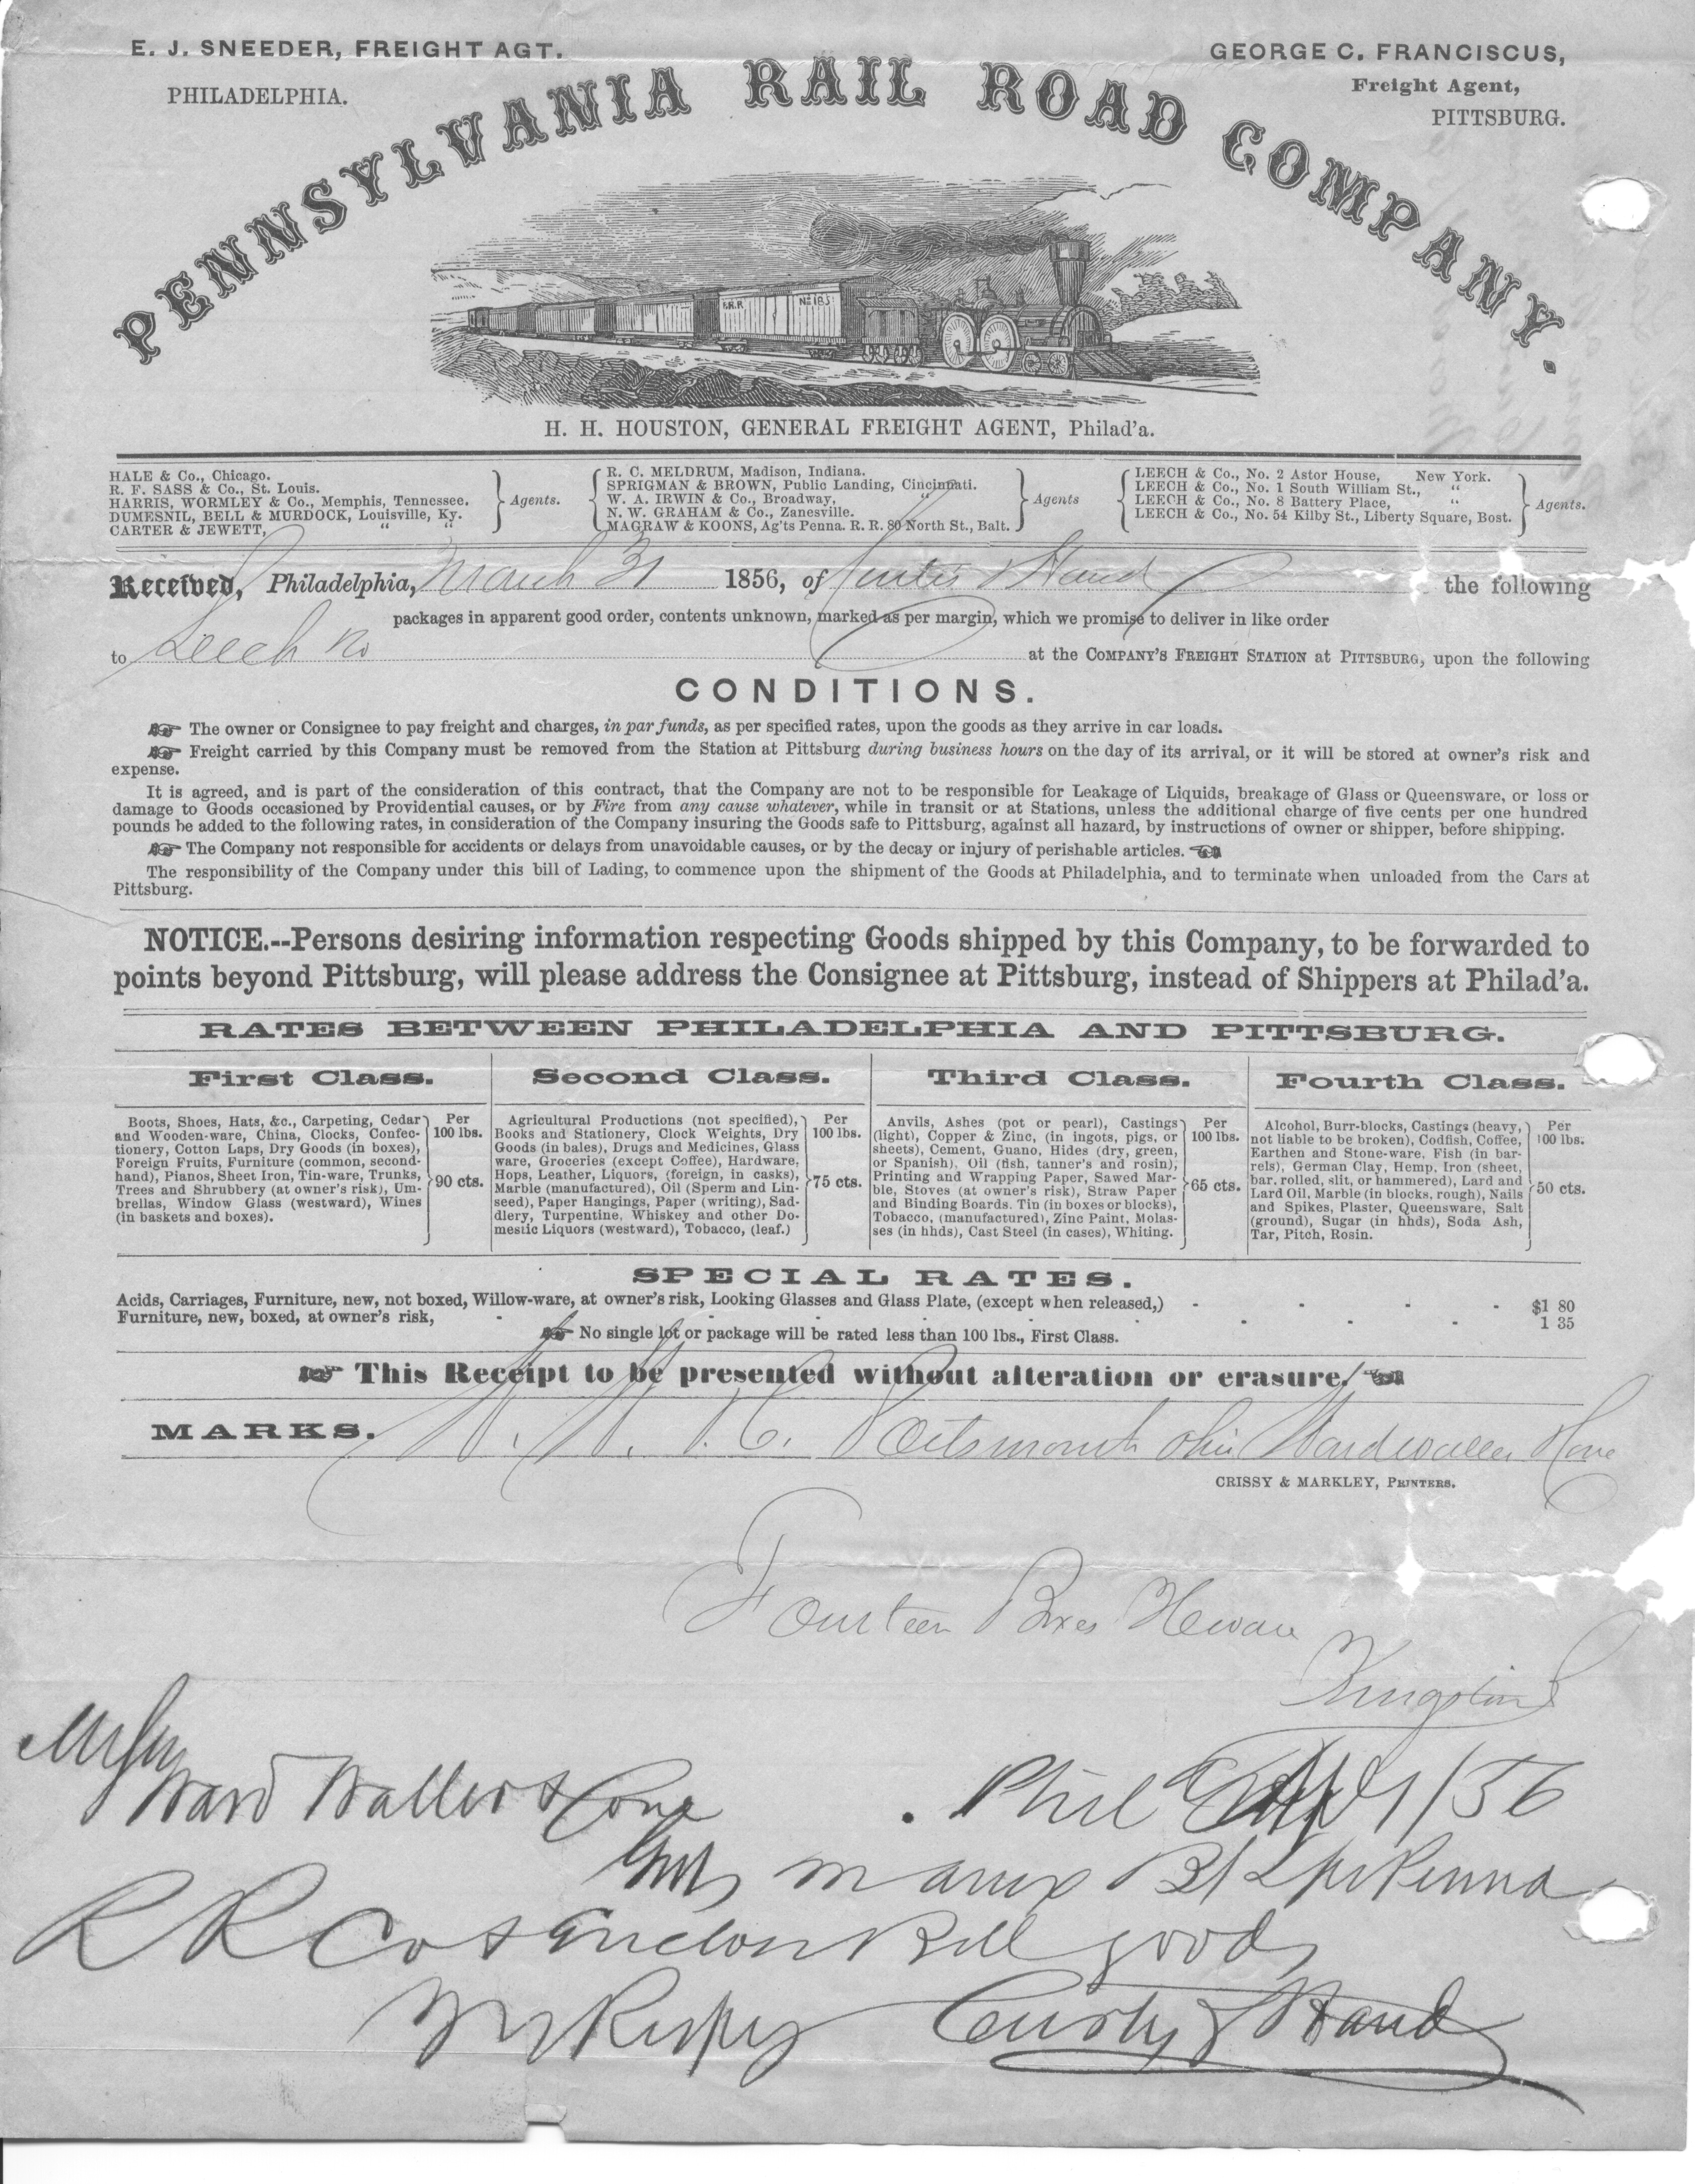 E. J. SNEEDER, FREIGHT AGT.
PHILADELPHIA.
GEORGE C. FRANCISCUS,
Freight Agent,
PITTSBURG.
PENNSYLVANIA RAIL ROAD COMPANY.
P.R.R. No 185
H. H. HOUSTON, GENERAL FREIGHT AGENT, Philad'a.
HALE & Co., Chicago.
R. F. SASS & Co., St. Louis.
HARRIS, WORMLEY & Co., Memphis, Tennessee.
DUMESNIL, BELL & MURDOCK, Louisville, Ky.
CARTER & JEWETT, " "
Agents.
R. C. MELDRUM, Madison, Indiana.
SPRIGMAN & BROWN, Public Landing, Cincinnati.
W. A. IRWIN & Co., Broadway, "
N. W. GRAHAM & Co., Zanesville.
MAGRAW & KOONS, Ag'ts Penna. R. R. 80 North St., Balt.
Agents
LEECH & Co., No. 2 Astor House, New York.
LEECH & Co., No. 1 South William St., "
LEECH & Co., No. 8 Battery Place, "
LEECH & Co., No. 54 Kilby St., Liberty Square, Bost.
Agents.
Received, Philadelphia, March 31 1856, of Curtis & Hand the following
packages in apparent good order, contents unknown, marked as per margin, which we promise to deliver in like order
to Leech at the COMPANY'S FREIGHT STATION at PITTSBURG, upon the following
CONDITIONS.
The owner or Consignee to pay freight and charges, in par funds, as per specified rates, upon the goods as they arrive in car loads.
Freight carried by this Company must be removed from the Station at Pittsburg during business hours on the day of its arrival, or it will be stored at owner's risk and
expense.
It is agreed, and is part of the consideration of this contract, that the Company are not to be responsible for Leakage of Liquids, breakage of Glass or Queensware, or loss or
damage to Goods occasioned by Providential causes, or by Fire from any cause whatever, while in transit or at Stations, unless the additional charge of five cents per one hundred
pounds be added to the following rates, in consideration of the Company insuring the Goods safe to Pittsburg, against all hazard, by instructions of owner or shipper, before shipping.
The Company not responsible for accidents or delays from unavoidable causes, or by the decay or injury of perishable articles.
The responsibility of the Company under this bill of Lading, to commence upon the shipment of the Goods at Philadelphia, and to terminate when unloaded from the Cars at
Pittsburg.
NOTICE.--Persons desiring information respecting Goods shipped by this Company, to be forwarded to
points beyond Pittsburg, will please address the Consignee at Pittsburg, instead of Shippers at Philad'a.
RATES BETWEEN PHILADELPHIA AND PITTSBURG.
First Class.
Boots, Shoes, Hats, &c., Carpeting, Cedar
and Wooden-ware, China, Clocks, Confec-
tionery, Cotton Laps, Dry Goods (in boxes),
Foreign Fruits, Furniture (common, second-
hand), Pianos, Sheet Iron, Tin-ware, Trunks,
Trees and Shrubbery (at owner's risk), Um-
brellas, Window Glass (westward), Wines
(in baskets and boxes).
Per
100 lbs.
90 cts.
Second Class.
Agricultural Productions (not specified),
Books and Stationery, Clock Weights, Dry
Goods (in bales), Drugs and Medicines, Glass
ware, Groceries (except Coffee), Hardware,
Hops, Leather, Liquors, (foreign, in casks),
Marble (manufactured), Oil (Sperm and Lin-
seed), Paper Hangings, Paper (writing), Sad-
dlery, Turpentine, Whiskey and other Do-
mestic Liquors (westward), Tobacco, (leaf.)
Per
100 lbs.
75 cts.
Third Class.
Anvils, Ashes (pot or pearl), Castings
(light), Copper & Zinc, (in ingots, pigs, or
sheets), Cement, Guano, Hides (dry, green,
or Spanish), Oil (fish, tanner's and rosin),
Printing and Wrapping Paper, Sawed Mar-
ble, Stoves (at owner's risk), Straw Paper
and Binding Boards. Tin (in boxes or blocks),
Tobacco, (manufactured), Zinc Paint, Molas-
ses (in hhds), Cast Steel (in cases), Whiting.
Per
100 lbs.
65 cts.
Fourth Class.
Alcohol, Burr-blocks, Castings (heavy,
not liable to be broken), Codfish, Coffee,
Earthen and Stone-ware, Fish (in bar-
rels), German Clay, Hemp, Iron (sheet,
bar, rolled, slit, or hammered), Lard and
Lard Oil, Marble (in blocks, rough), Nails
and Spikes, Plaster, Queensware, Salt
(ground), Sugar (in hhds), Soda Ash,
Tar, Pitch, Rosin.
Per
100 lbs.
50 cts.
SPECIAL RATES.
Acids, Carriages, Furniture, new, not boxed, Willow-ware, at owner's risk, Looking Glasses and Glass Plate, (except when released,) - - - - $1 80
Furniture, new, boxed, at owner's risk, - - - - - - - - 1 35
No single lot or package will be rated less than 100 lbs., First Class.
This Receipt to be presented without alteration or erasure.
MARKS. Portsmouth Ohio
CRISSY & MARKLEY, PRINTERS.
Fourteen Boxes
Kingston
Ward Waller & Cone
Phil 1/56
Gents m annex B/L pr Penna
R R Co & Enclose Bill goods
Curtis & Hand